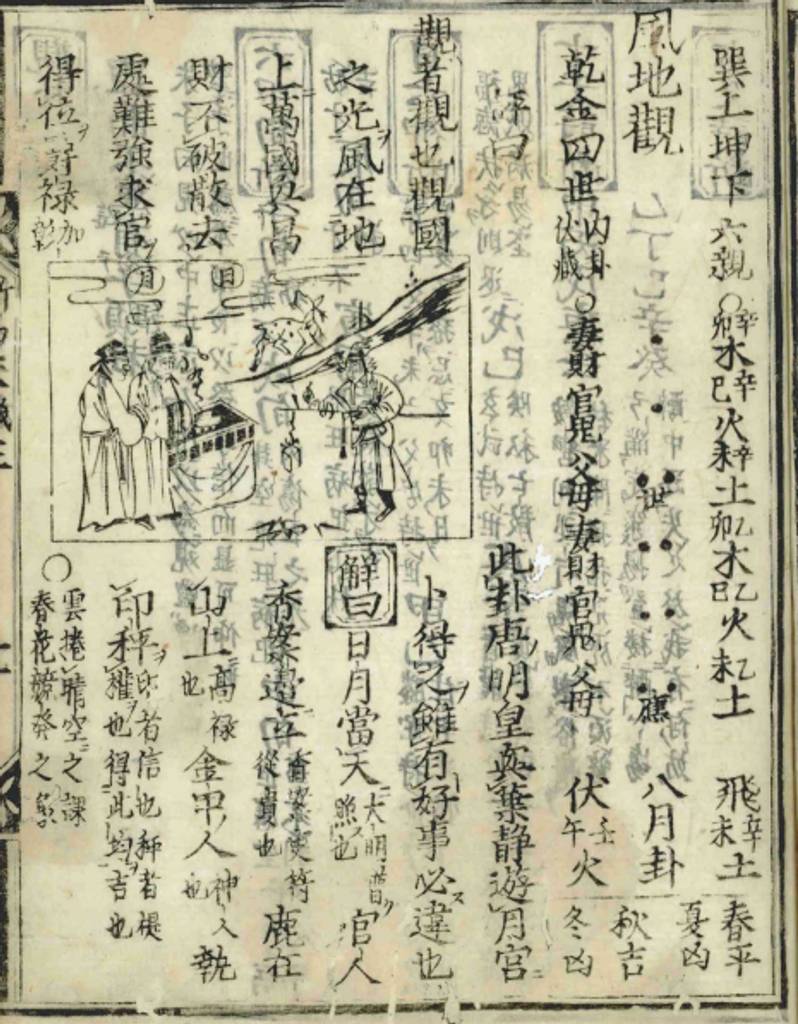 巽上坤下 六親 ○ 辛卯木 辛巳火 辛未土 乙卯木 乙巳火 乙未土 飛辛未土 春平 夏凶
風地觀 世 應 八月卦 秋吉
乾金四世 內卦伏藏 ○ 妻財 官鬼 父母 妻財 官鬼 父母 伏壬午火 冬凶
此卦唐明皇與葉静遊月宮
卜得之雖有好事必違也
觀者觀也觀國
之光風在地
上萬國興昌
財不破散去
處難強求官
得位 好祿加彰
日
月
解曰 日月當天 大明普照也 官人
香案邊立 香案吏符從貴也 鹿在
山上 高祿也 金甲人 神人也 執
印秤 印者信也秤者權也得此均吉也
○ 雲捲晴空之課
春花競發之象